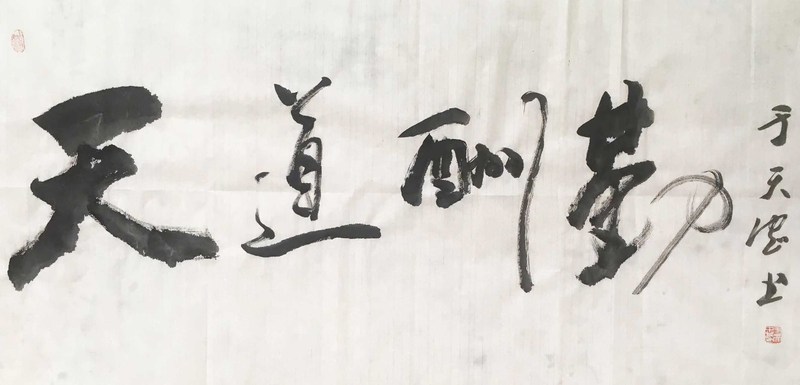 天道酬勤
于天德书